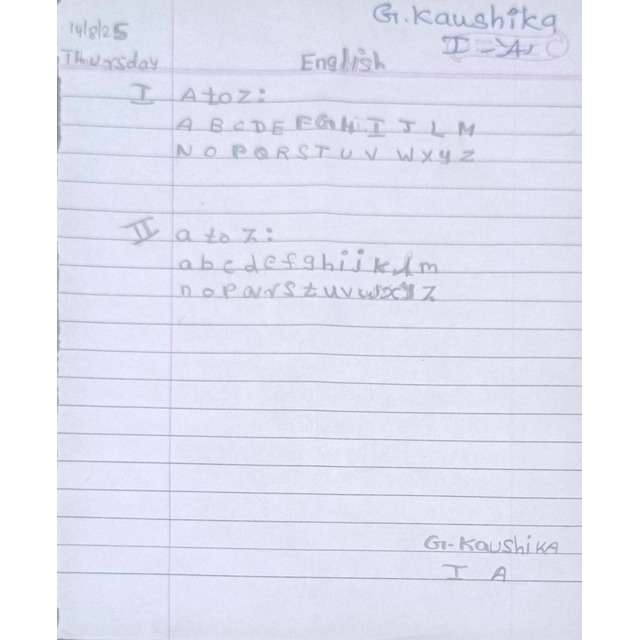 14/8/25
G.Kaushika
Thursday
English
I A to z:
A B C D E F G H I J L M
N O P Q R S T U V W X Y Z
II a to z:
a b c d e f g h i j k l m
n o p q r s t u v w x y z
G-Kaushika
I A